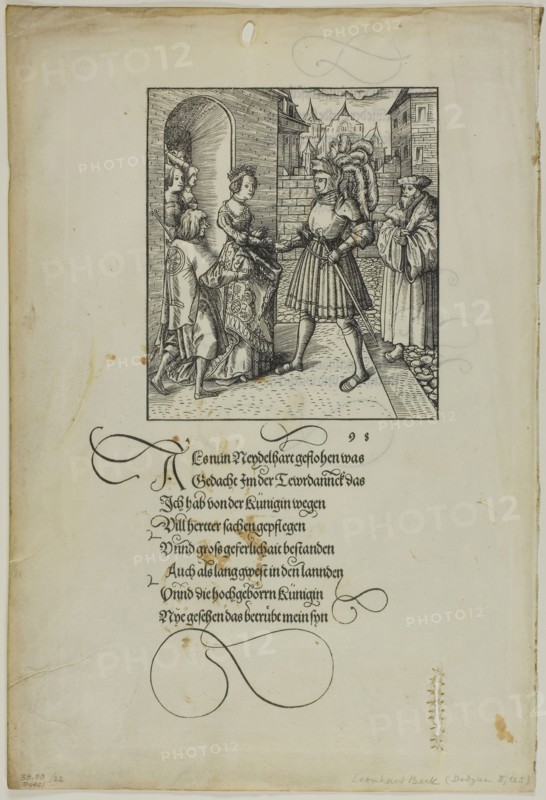 98
Als nun Neydelhart geflohen was
Gedacht Im der Tewrdannck das
Ich hab von der Künigin wegen
Vill hertter sachen gepflegen
Vnnd gross geferlichait bestanden
Auch als lang gwest in den lannden
Vnnd die hochgeborrn Künigin
Nye gesehen das betrübt mein syn
Leonhard Beck (Dodgson II, 125)
PHOTO12